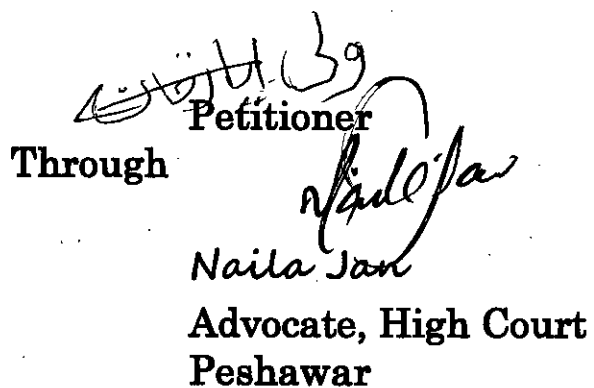 Petitioner
Through
Naila Jan
Naila Jan
Advocate, High Court
Peshawar